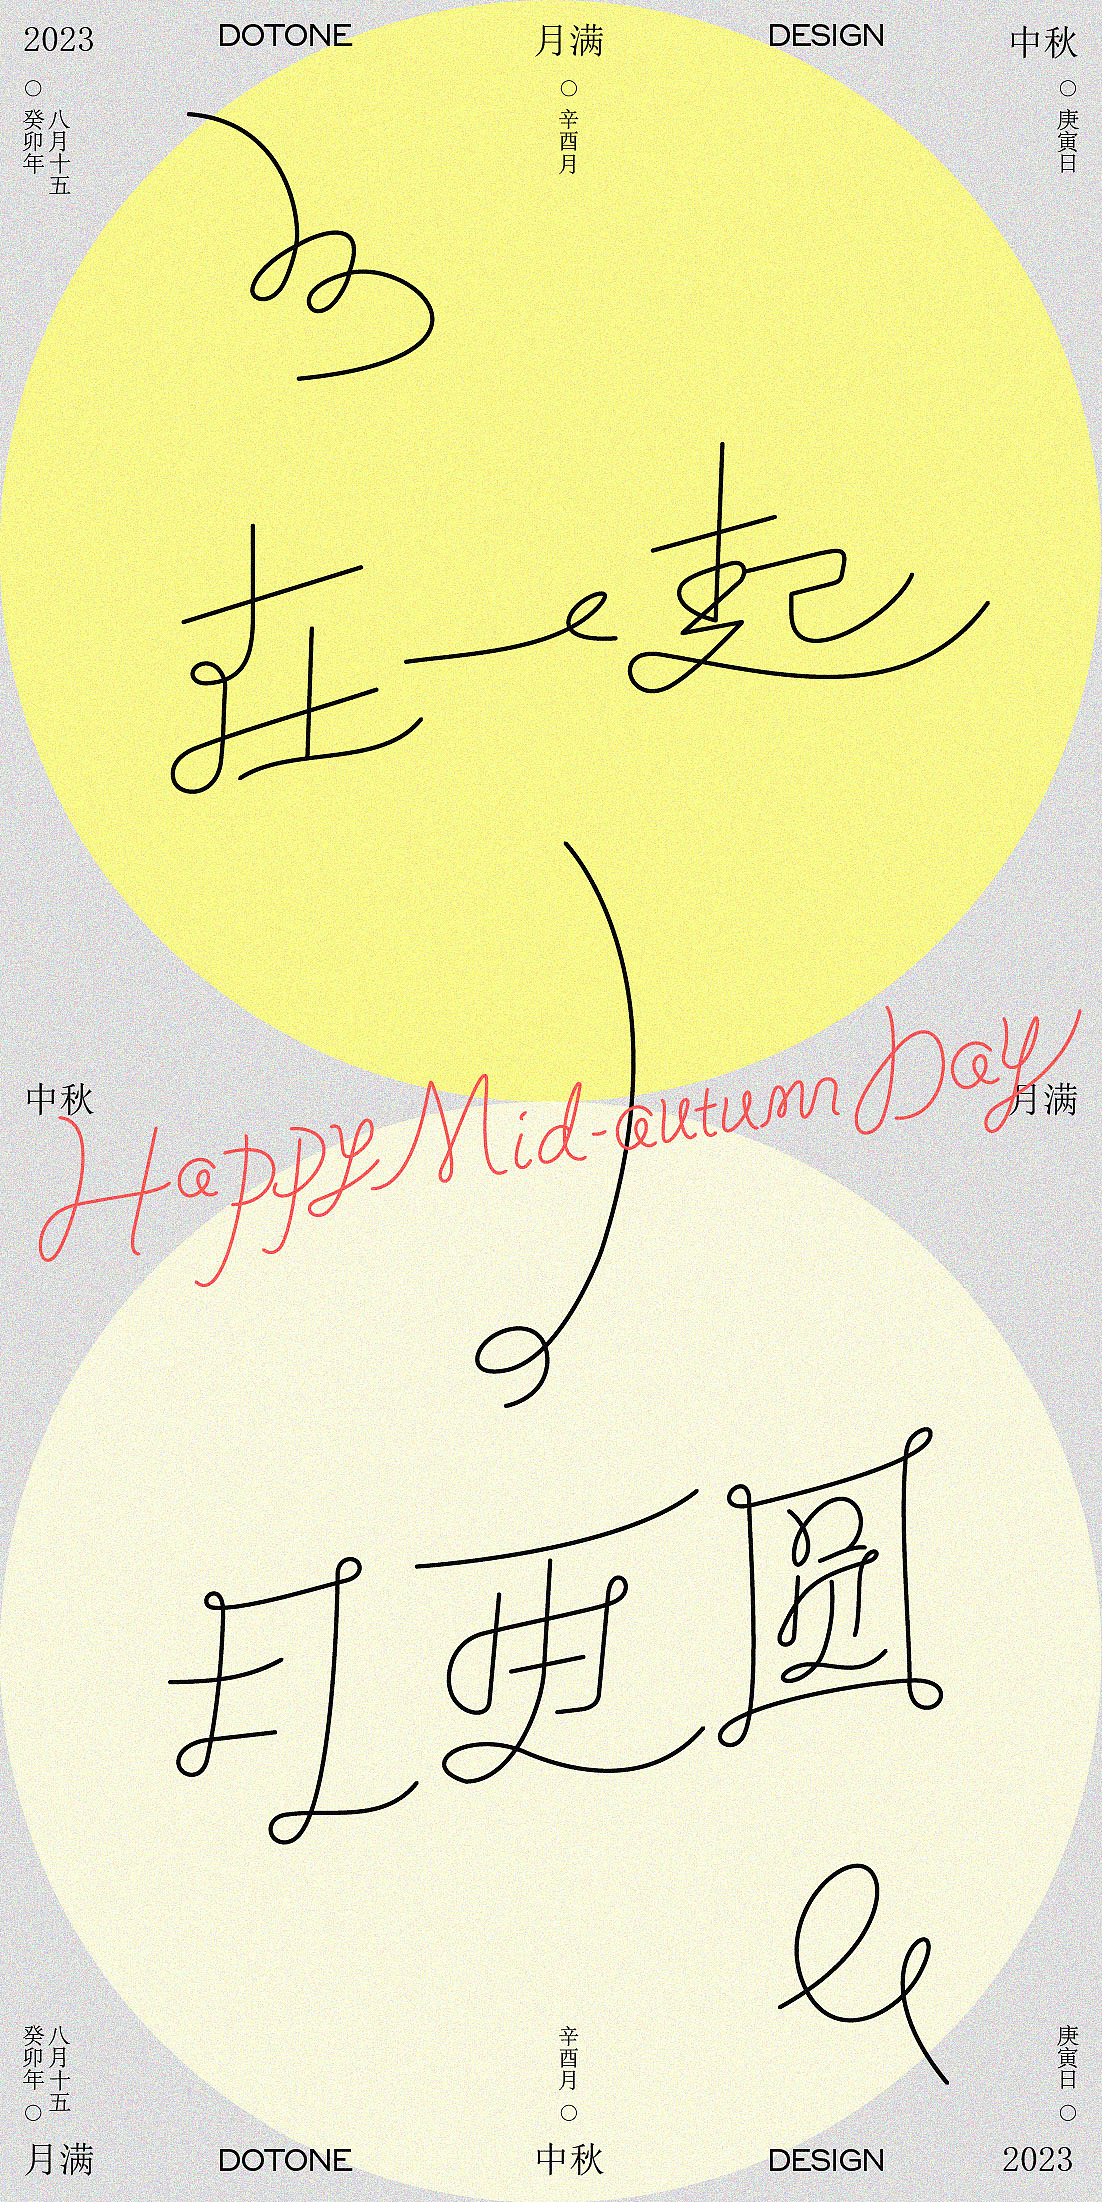 2023 DOTONE 月满 DESIGN 中秋
八月十五
癸卯年
辛酉月
庚寅日
在一起
中秋
月满
Happy Mid-autumn Day
月更圆
八月十五
癸卯年
辛酉月
庚寅日
月满 DOTONE 中秋 DESIGN 2023